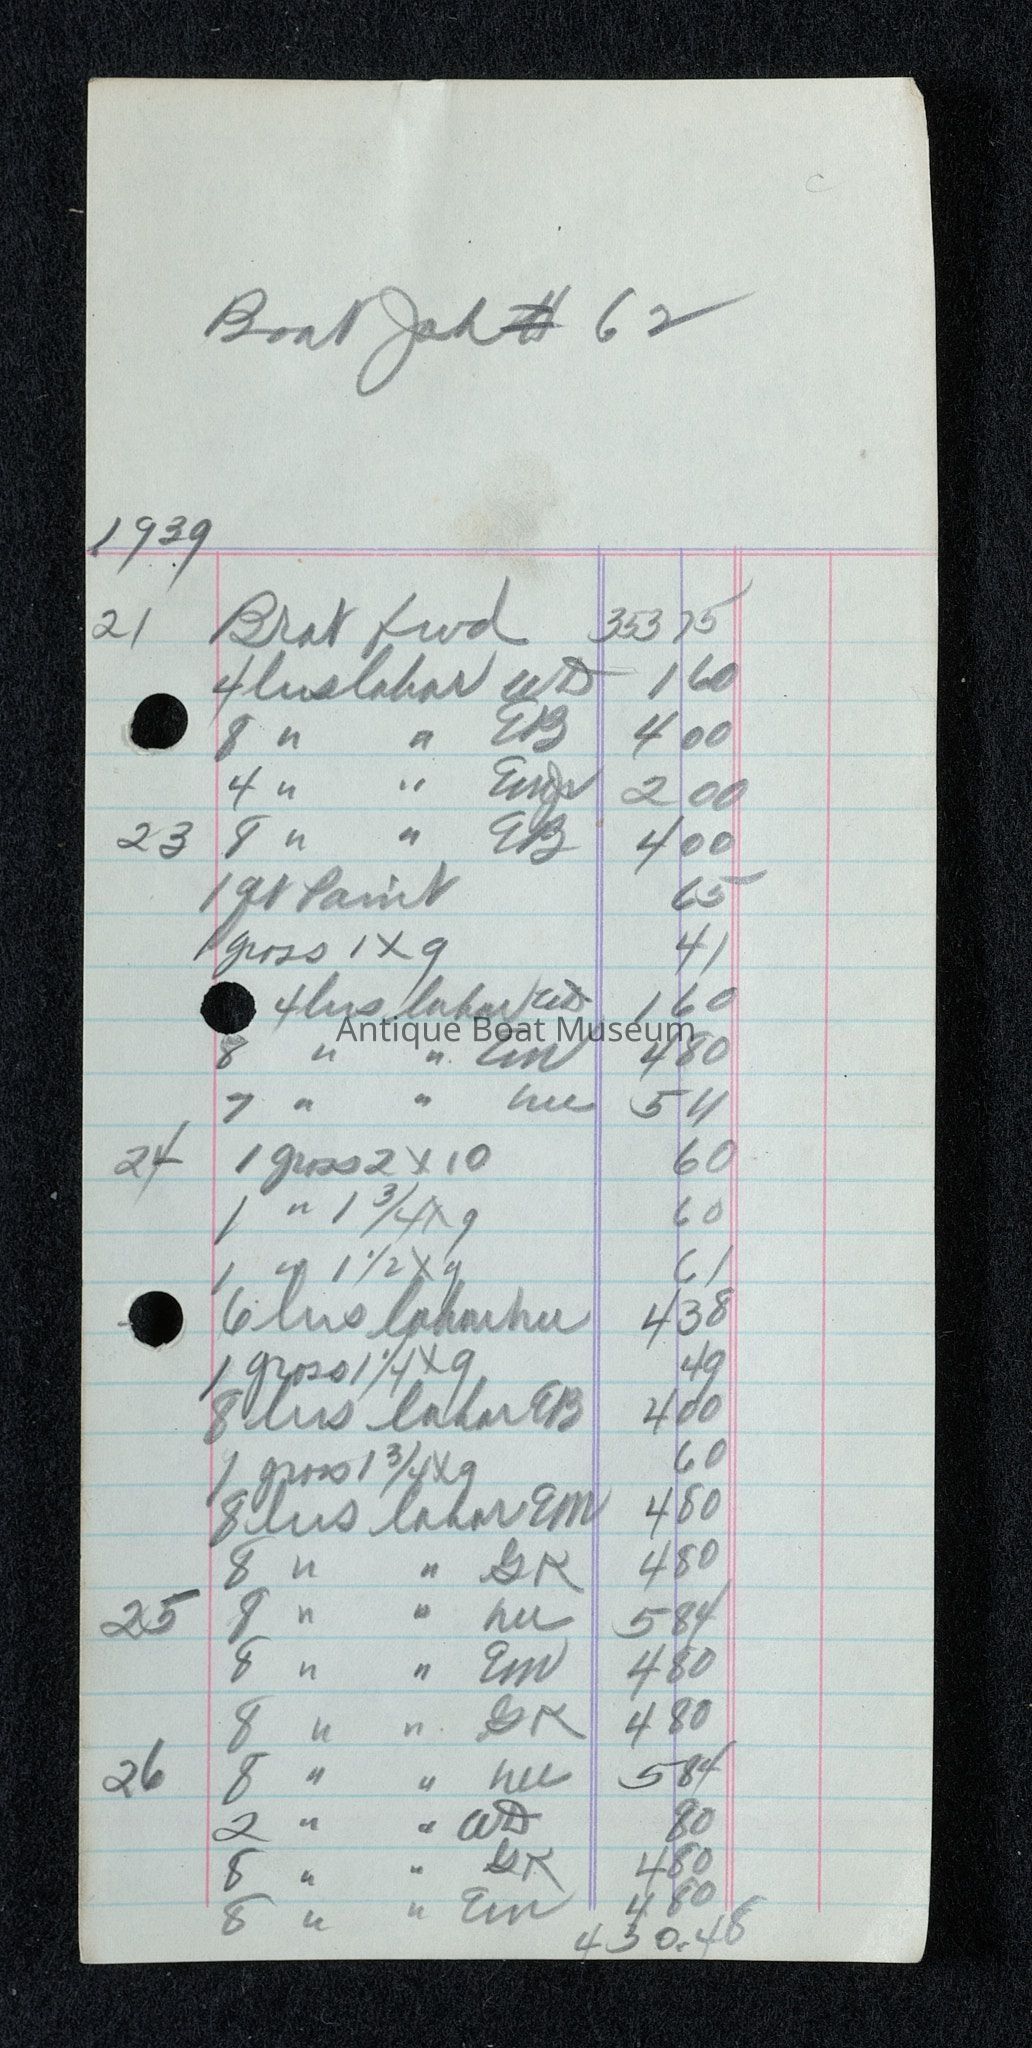 Boat Job # 62
1939
21 Brot fwd 353 75
4 hrs labor WD 1 60
8 " " EB 4 00
4 " " 2 00
23 8 " " EB 4 00
1 qt Paint 65
1 gross 1 X 9 41
4 hrs labor WD 1 60
Antique Boat Museum
8 " " EM 4 80
7 " " 5 11
24 1 gross 2 X 10 60
1 " 1 3/4 X 9 60
1 " 1 1/2 X 9 61
6 hrs labor 4 38
1 gross 1 1/4 X 9 49
8 hrs labor EB 4 00
1 gross 1 3/4 X 9 60
8 hrs labor EM 4 80
8 " " GK 4 80
25 8 " " 5 84
8 " " EM 4 80
8 " " GK 4 80
26 8 " " 5 84
2 " " WD 80
8 " " GK 4 80
8 " " EM 4 80
430.48